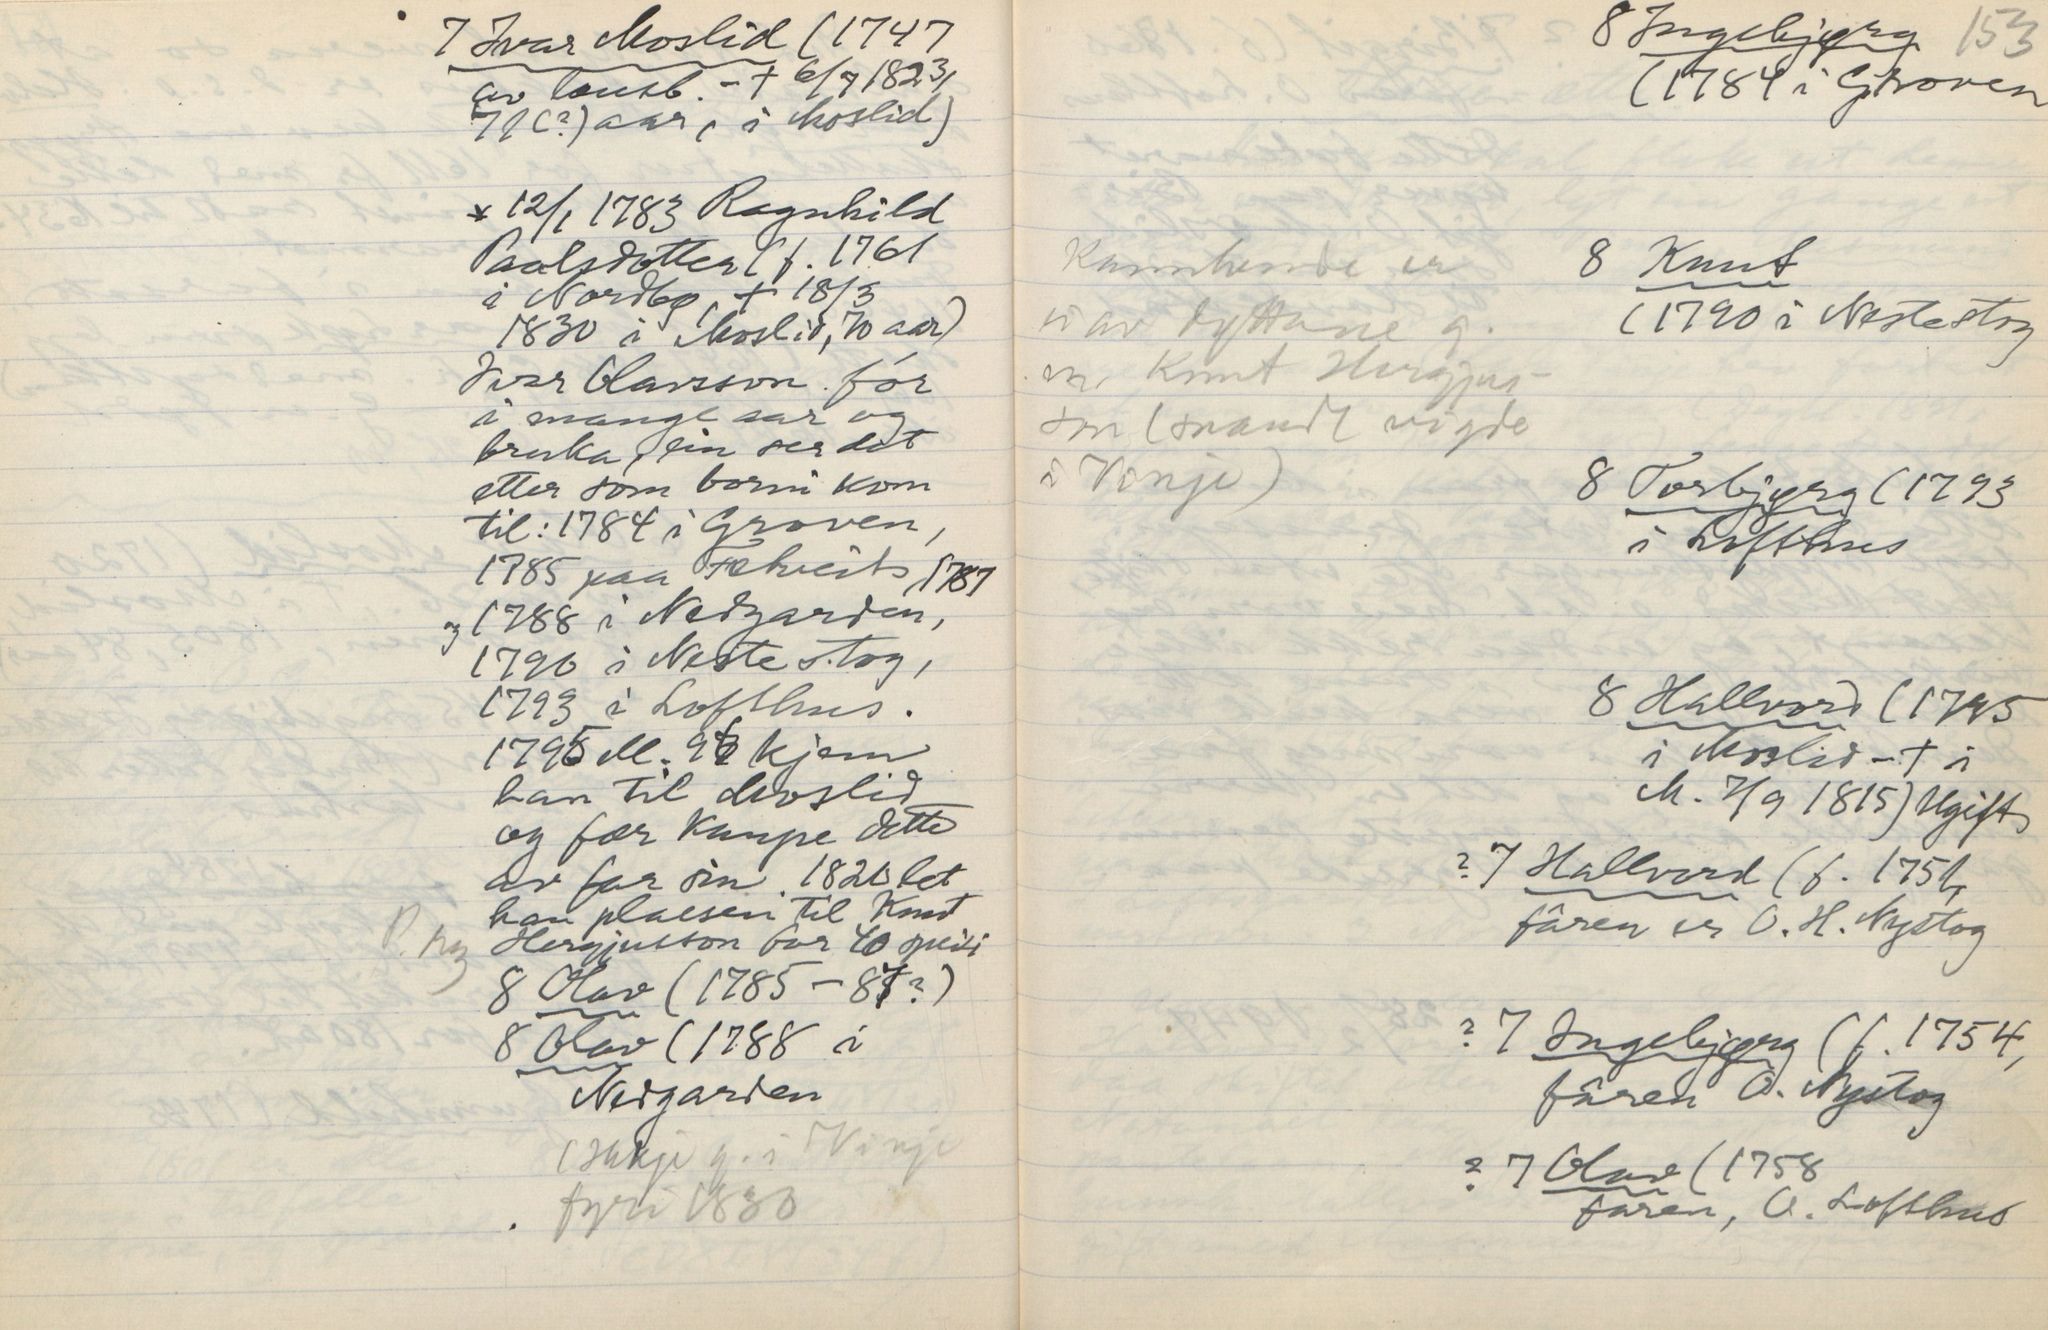 7 Ivar Moslid (1747
av lausb. - † 6/7 1823,
71(?) aar, i Moslid)
* 12/1 1783 Ragnhild
Paalsdotter (f. 1761
i Nordbø, † 18/3
1830 i Moslid, 70 aar)
Ivar Olavsson fór
i mange aar og
bruka, ein ser det
etter som borni kom
til: 1784 i Groven,
1785 paa 1787
og 1788 i Nedgarden,
1790 i Nestestog,
1793 i Lofthus.
1795 kjem
han til Moslid
og fær kaupe dette
av far sin. let
han plassen til Knut
P. hg Hergjusson for 40 speci
8 Olav (1785 - 87?)
8 Olav (1788 i
Nedgarden
(Ikkje g. i Vinje
fyri 1830
153
8 Ingebjørg
(1784 i Groven
8 Knut
(1790 i Nestestog
Kannhende er
ei av dyttane g.
m. Knut Hergjus-
son (snaudt vigde
i Vinje)
8 Torbjørg (1793
i Lofthus
8 Hallvord (1795
i Moslid - † i
M. 7/9 1815) Ugift
? 7 Hallvord (f. 1751,
fâren er O. H. Nystog
? 7 Ingebjørg (f. 1754,
fâren O. Nystog
? 7 Olav (1758
faren, O. Lofthus